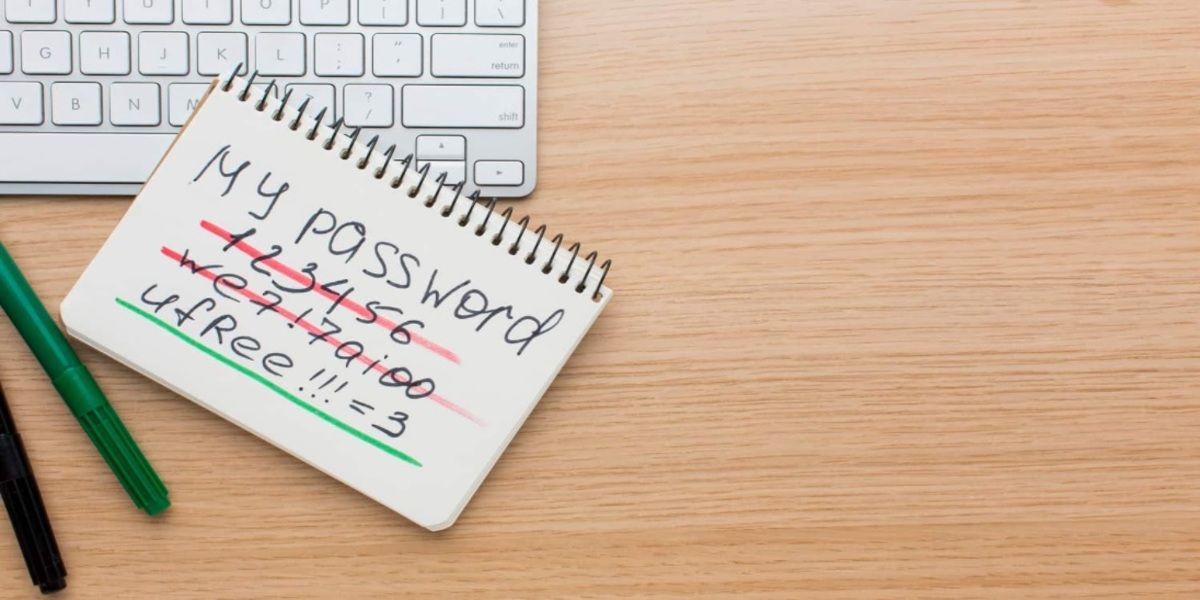 Y U I O P { [ } ]
G H J K L : ; " '
enter
return
V B N M ? /
shift
My password
123456
we7!7aioo
ufRee!!!=3